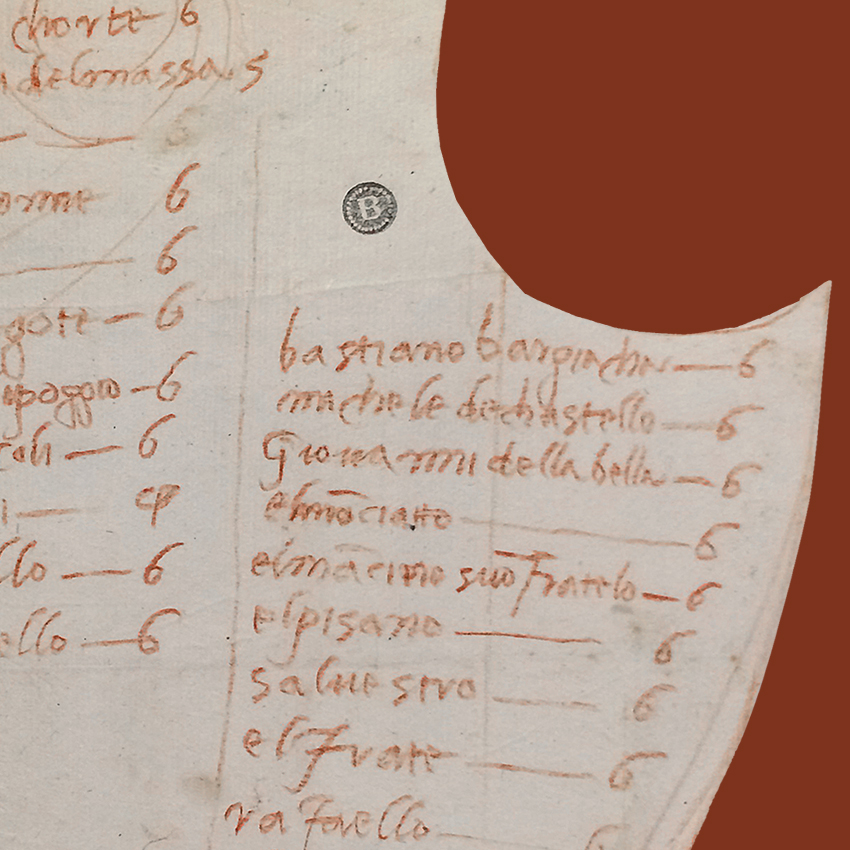 chorte 6
delmassa 5
6
orme 6
6
gott 6
ipoggio 6
6
lo 6
ello 6
B
bastiano bargiachi 6
michele dechastello 6
giouanni della bella 6
elmāciatto 6
elmācino suo fratelo 6
elpisano 6
saluestro 6
elfrate 6
rafaello 6